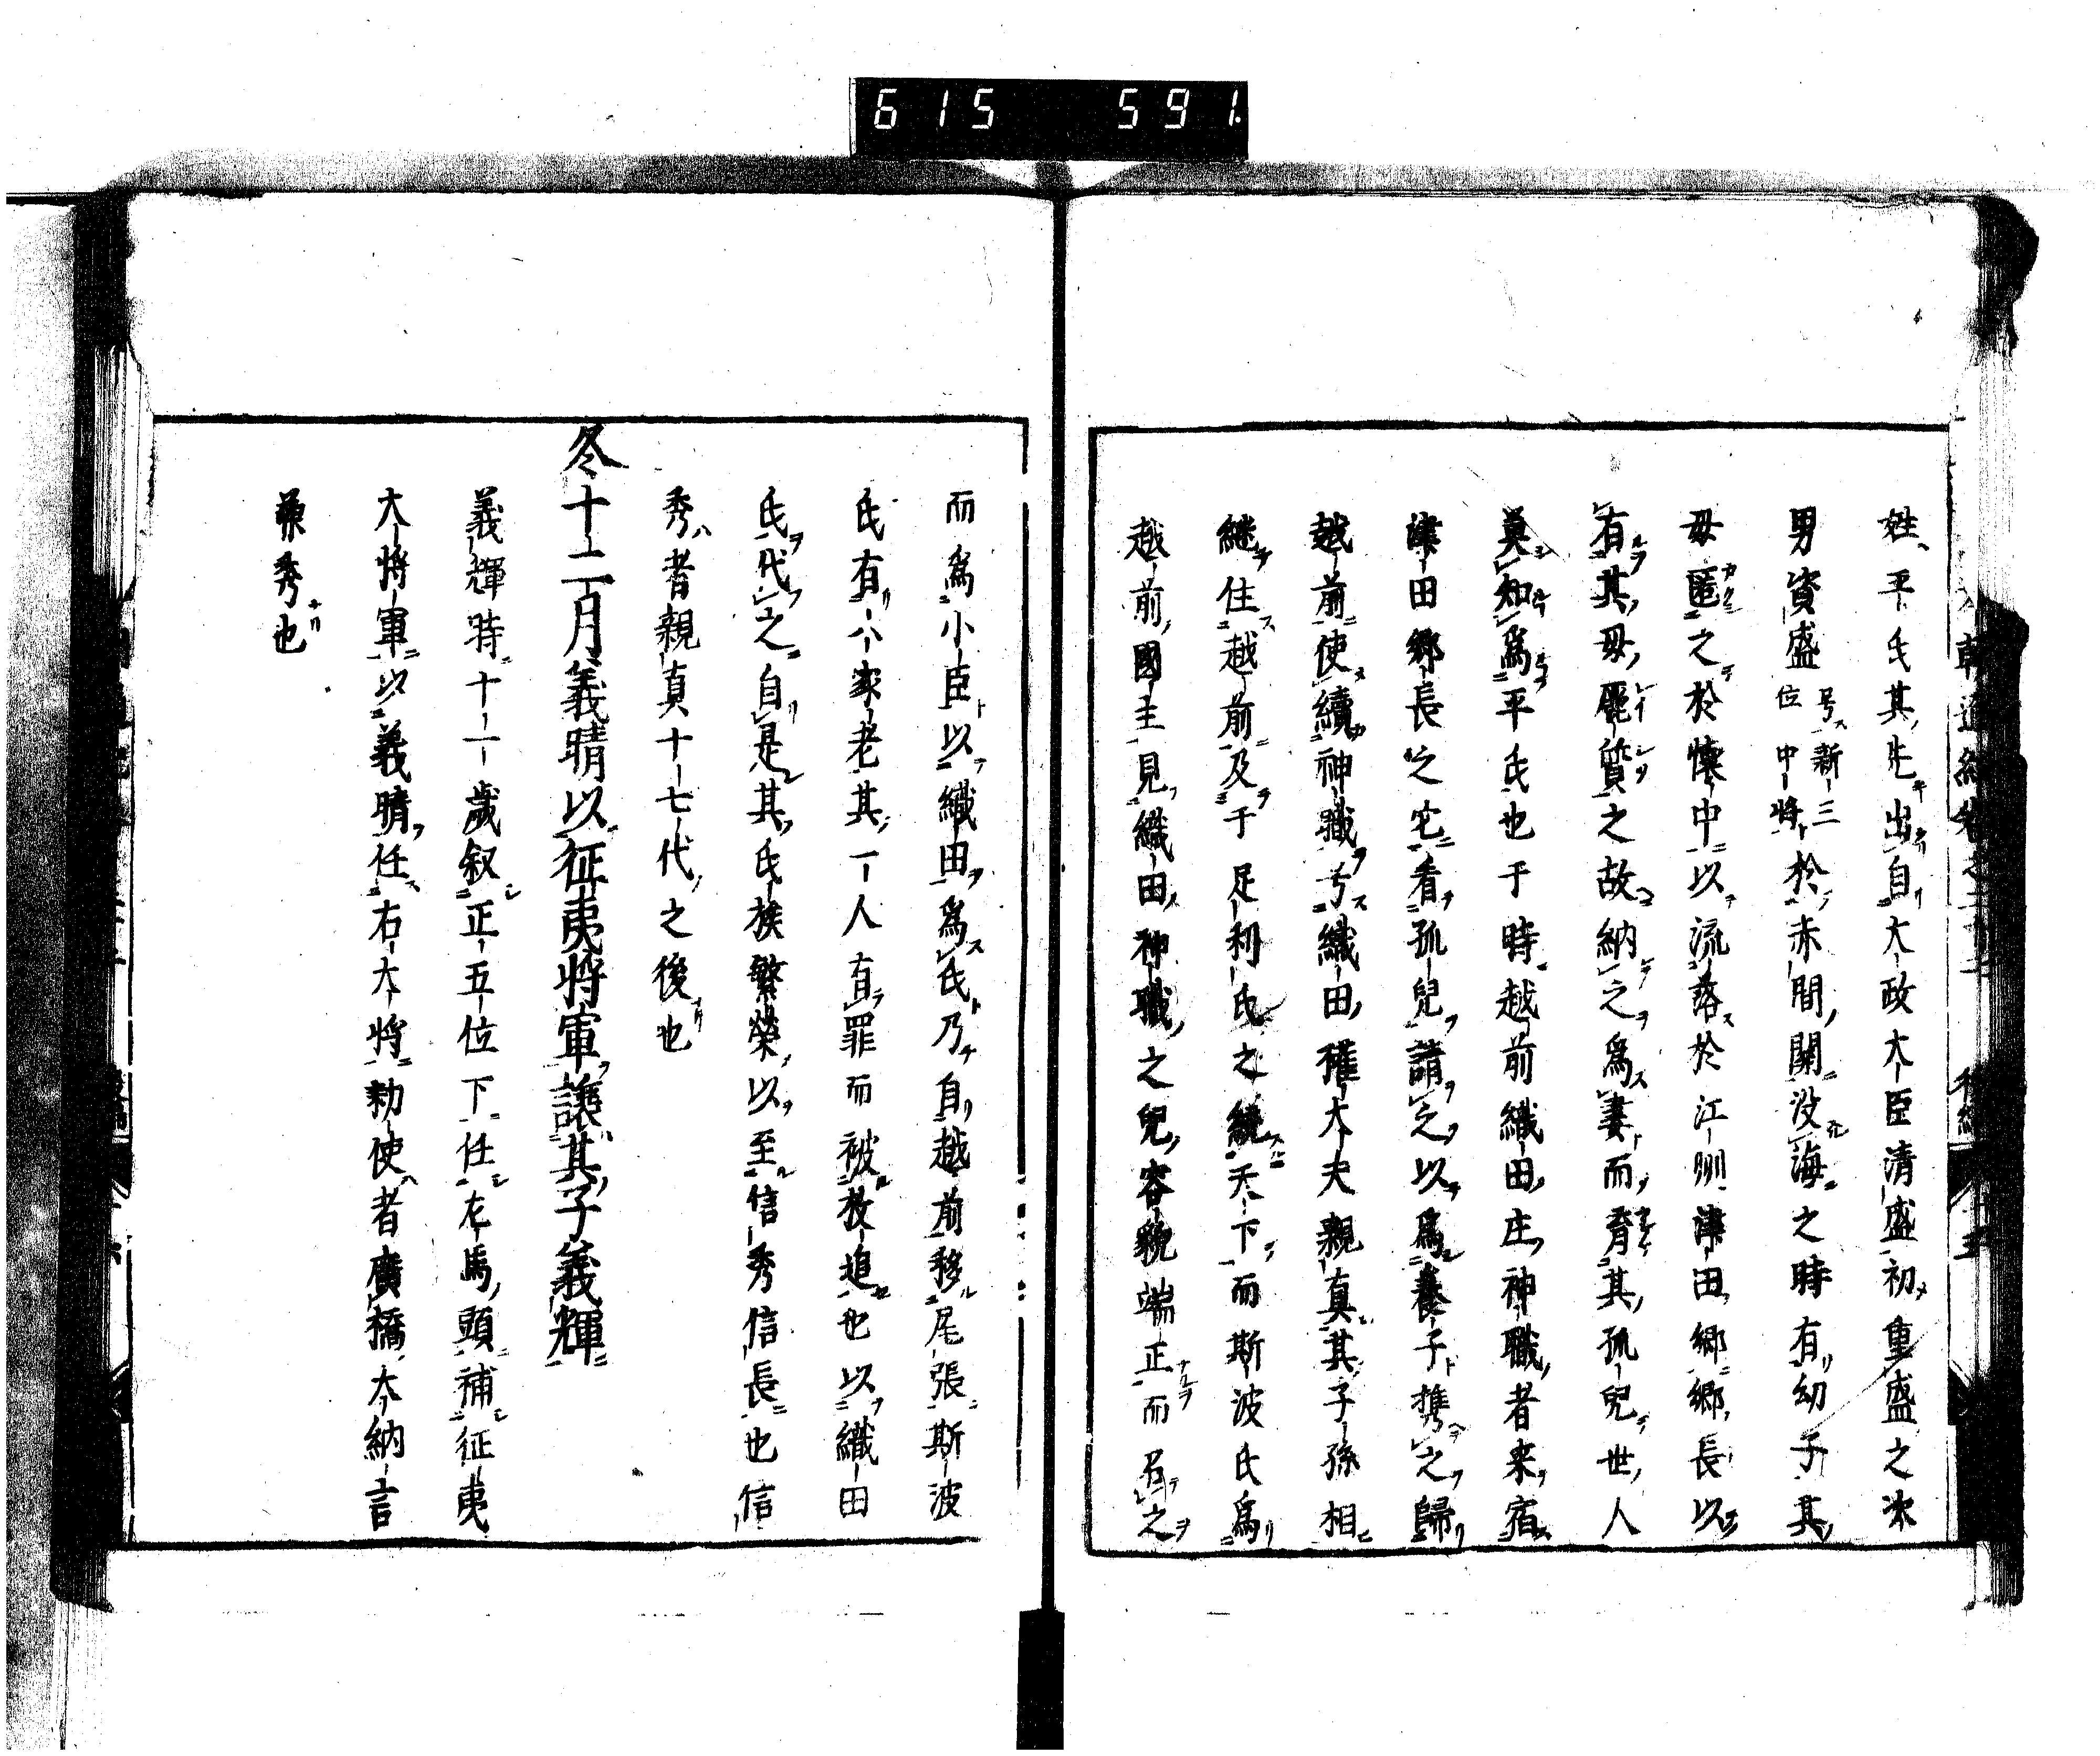 615 591.
姓平氏其先出自大政大臣清盛初重盛之次
男資盛号新三位中將於赤間關没海之時有幼子其
母匿之於懐中以流落於江刕津田郷郷長以
有其母麗質之故納之爲妻而育其孤兒世人
莫知爲平氏也于時越前織田庄神職者来宿
津田郷長之宅看孤兒請之以爲養子携之歸
越前使續神職号織田權大夫親真其子孫相
継住越前及于足利氏之統天下而斯波氏爲
越前國主見織田神職之兒容貌端正而召之
而爲小臣以織田爲氏乃自越前移尾張斯波
氏有八家老其一人有罪而被放追也以織田
氏代之自是其氏族繁榮以至信秀信長也信
秀者親真十七代之後也
冬十二月義晴以征夷將軍譲其子義輝
義輝時十一歳叙正五位下任左馬頭補征夷
大將軍以義晴任右大將勅使者廣橋大納言
兼秀也